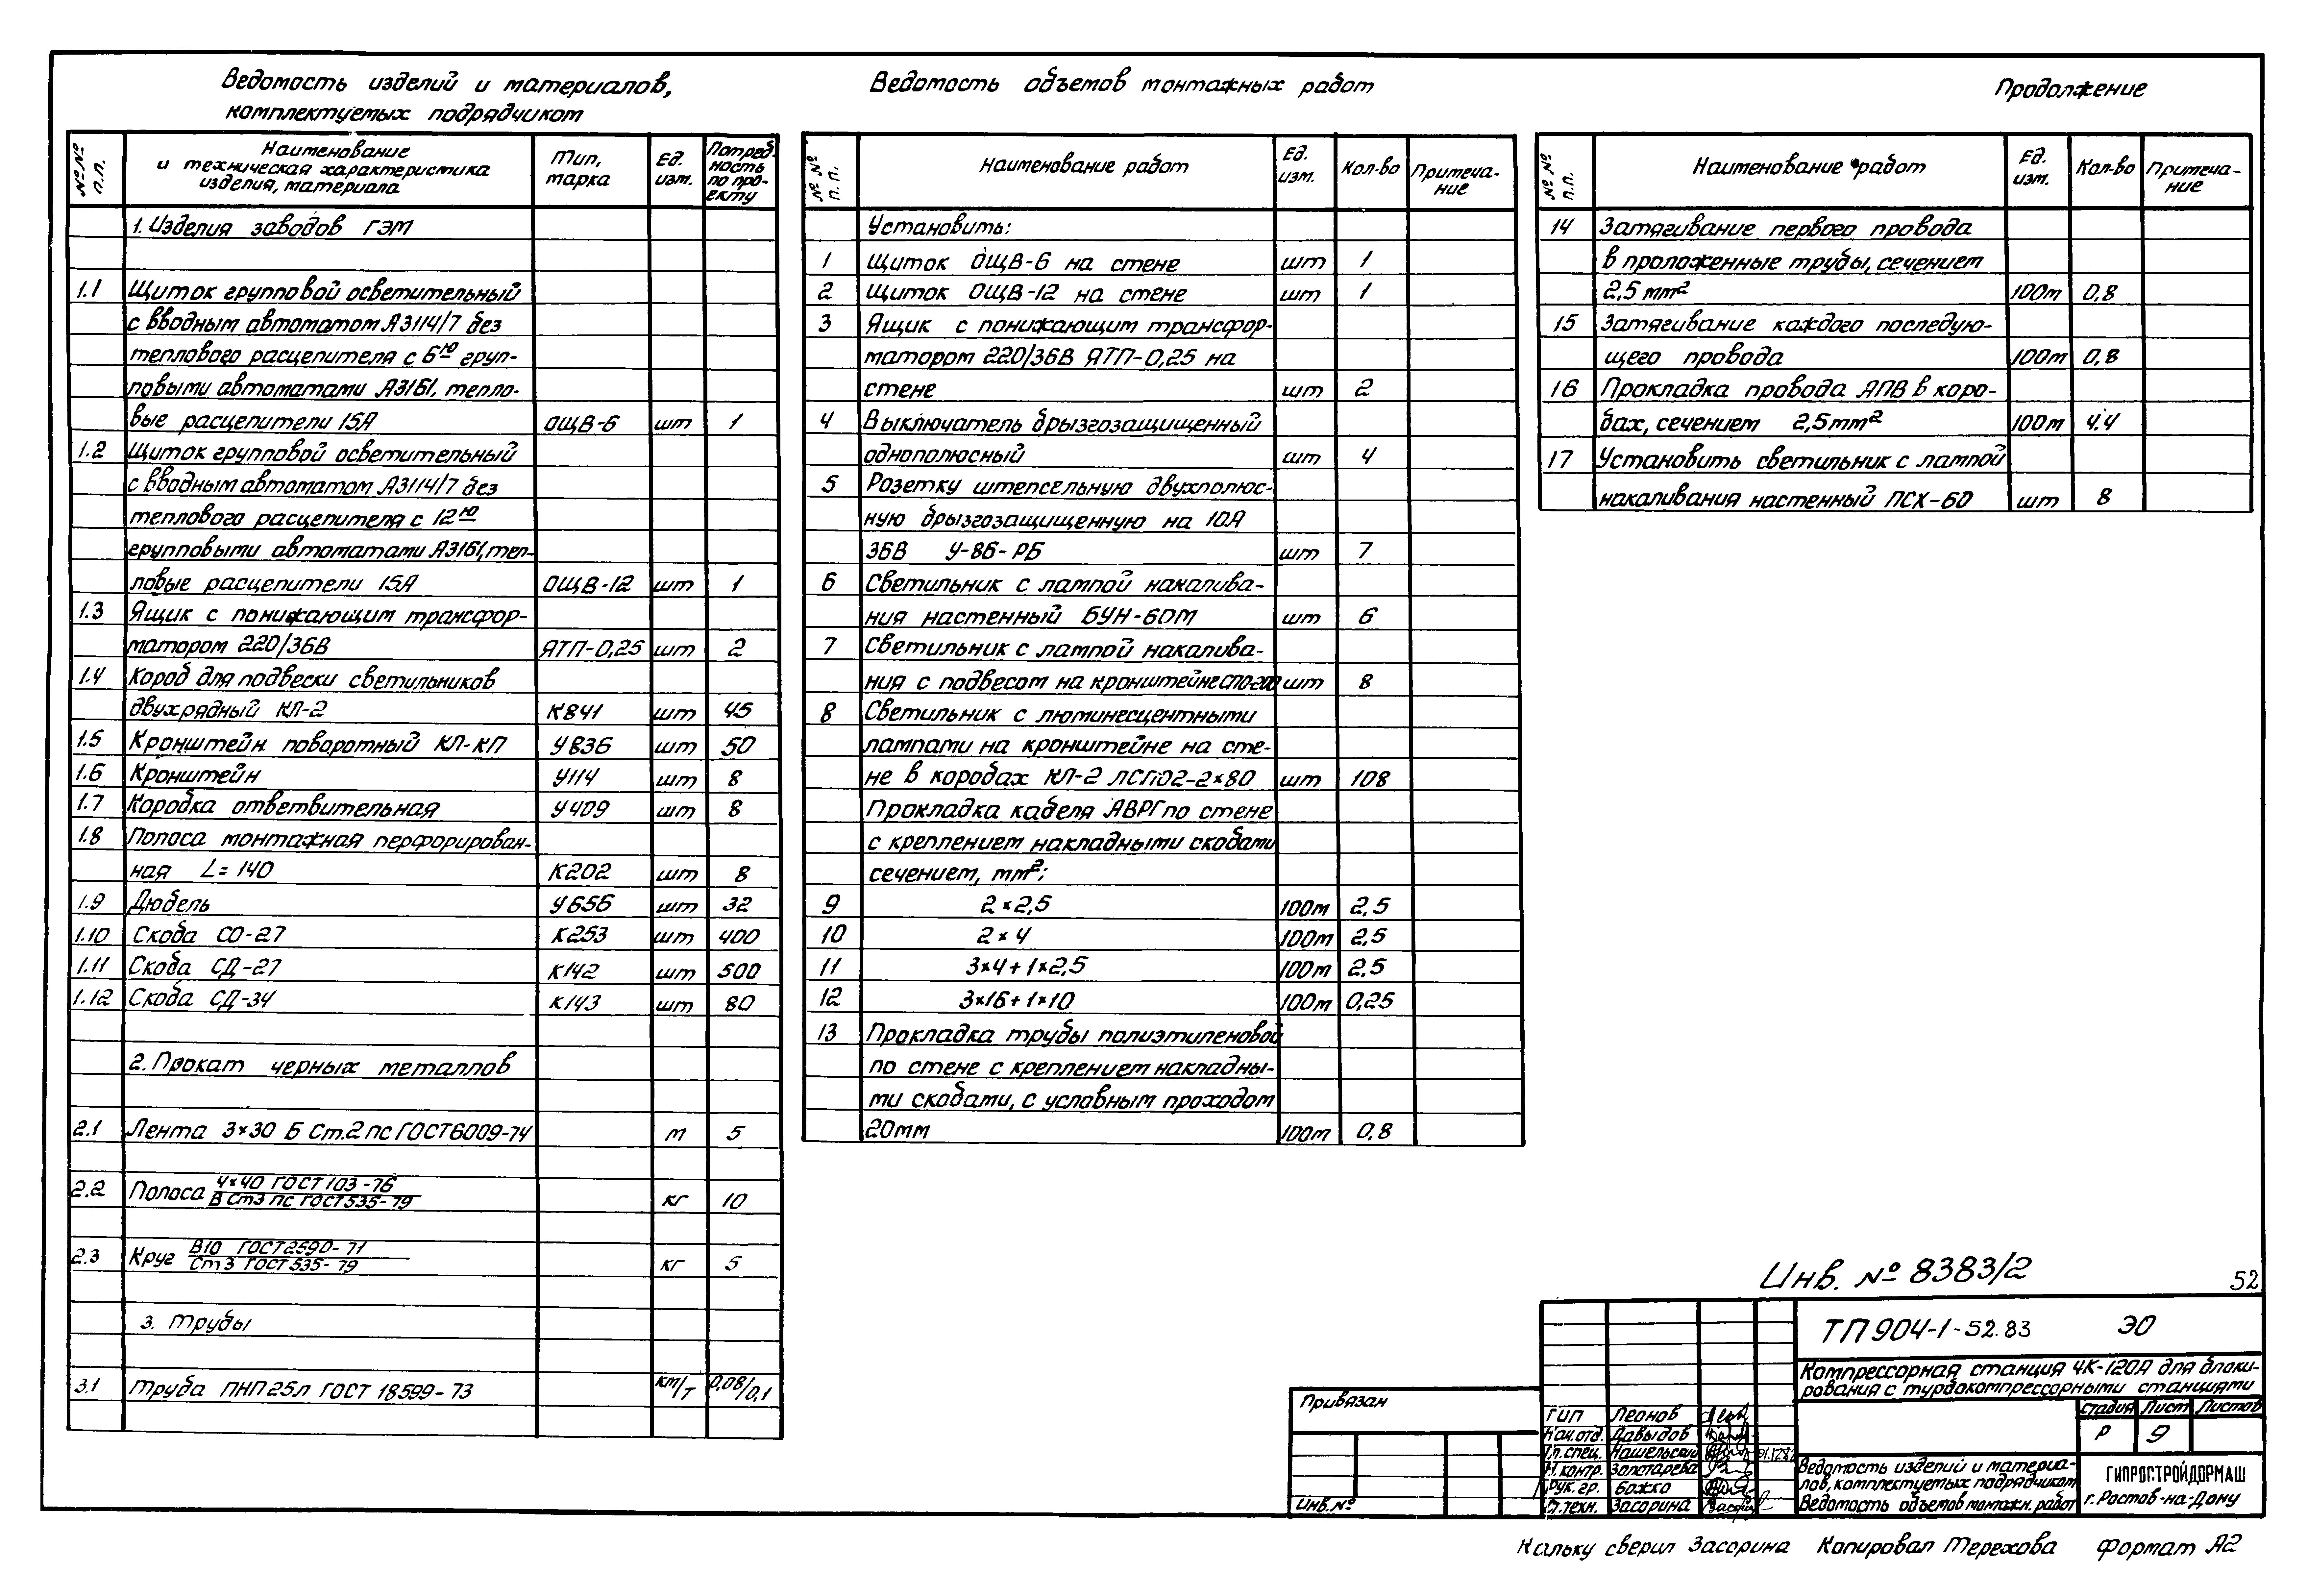 Ведомость изделий и материалов,
комплектуемых подрядчиком
№№ п.п.
Наименование
и техническая характеристика
изделия, материала
Тип,
марка
Ед.
изм.
Потреб-
ность
по про-
екту
1. Изделия заводов ГЭМ
1.1 Щиток групповой осветительный
с вводным автоматом А3114/7 без
теплового расцепителя с 6ю груп-
повыми автоматами А3161, тепло-
вые расцепители 15А ОЩВ-6 шт 1
1.2 Щиток групповой осветительный
с вводным автоматом А3114/7 без
теплового расцепителя с 12ю
групповыми автоматами А3161, теп-
ловые расцепители 15А ОЩВ-12 шт 1
1.3 Ящик с понижающим трансфор-
матором 220/36В ЯТП-0,25 шт 2
1.4 Короб для подвески светильников
двухрядный КЛ-2 К841 шт 45
1.5 Кронштейн поворотный КЛ-КП У836 шт 50
1.6 Кронштейн У114 шт 8
1.7 Коробка ответвительная У409 шт 8
1.8 Полоса монтажная перфорирован-
ная L=140 К202 шт 8
1.9 Дюбель У656 шт 32
1.10 Скоба СО-27 К253 шт 400
1.11 Скоба СД-27 К142 шт 500
1.12 Скоба СД-34 К143 шт 80
2. Прокат черных металлов
2.1 Лента 3×30 Б Ст.2 пс ГОСТ 6009-74 м 5
2.2 Полоса 4×40 ГОСТ 103-76
В Ст3 пс ГОСТ 535-79 кг 10
2.3 Круг В10 ГОСТ 2590-71
Ст3 ГОСТ 535-79 кг 5
3. Трубы
3.1 Труба ПНП 25л ГОСТ 18599-73 км/т 0,08/0,1
Ведомость объемов монтажных работ
№№ п.п.
Наименование работ
Ед.
изм.
Кол-во
Примеча-
ние
Установить:
1 Щиток ОЩВ-6 на стене шт 1
2 Щиток ОЩВ-12 на стене шт 1
3 Ящик с понижающим трансфор-
матором 220/36В ЯТП-0,25 на
стене шт 2
4 Выключатель брызгозащищенный
однополюсный шт 4
5 Розетку штепсельную двухполюс-
ную брызгозащищенную на 10А
36В У-86-РБ шт 7
6 Светильник с лампой накалива-
ния настенный БУН-60М шт 6
7 Светильник с лампой накалива-
ния с подвесом на кронштейне шт 8
8 Светильник с люминесцентными
лампами на кронштейне на сте-
не в коробах КЛ-2 ЛСП02-2×80 шт 108
Прокладка кабеля АВРГ по стене
с креплением накладными скобами
сечением, мм²:
9 2×2,5 100м 2,5
10 2×4 100м 2,5
11 3×4+1×2,5 100м 2,5
12 3×16+1×10 100м 0,25
13 Прокладка трубы полиэтиленовой
по стене с креплением накладны-
ми скобами, с условным проходом
20мм 100м 0,8
Продолжение
№№ п.п.
Наименование работ
Ед.
изм.
Кол-во
Примеча-
ние
14 Затягивание первого провода
в проложенные трубы, сечением
2,5 мм² 100м 0,8
15 Затягивание каждого последую-
щего провода 100м 0,8
16 Прокладка провода АПВ в коро-
бах, сечением 2,5мм² 100м 4.4
17 Установить светильник с лампой
накаливания настенный ПСХ-60 шт 8
Инв. № 8383/2
52
ТП 904-1-52.83 ЭО
Компрессорная станция 4К-120А для блоки-
рования с турбокомпрессорными станциями
Стадия Лист Листов
Р 9
Привязан
Инв.№
ГИП Леонов
Нач.отд. Давыдов
Гл.спец. Нашельский
Н.контр. Золотарева
Рук.гр. Божко
Ст.техн. Засорина
Ведомость изделий и материа-
лов, комплектуемых подрядчиком
Ведомость объемов монтажн. работ
ГИПРОСТРОЙДОРМАШ
г. Ростов-на-Дону
Кальку сверил Засорина Копировал Терехова Формат А2